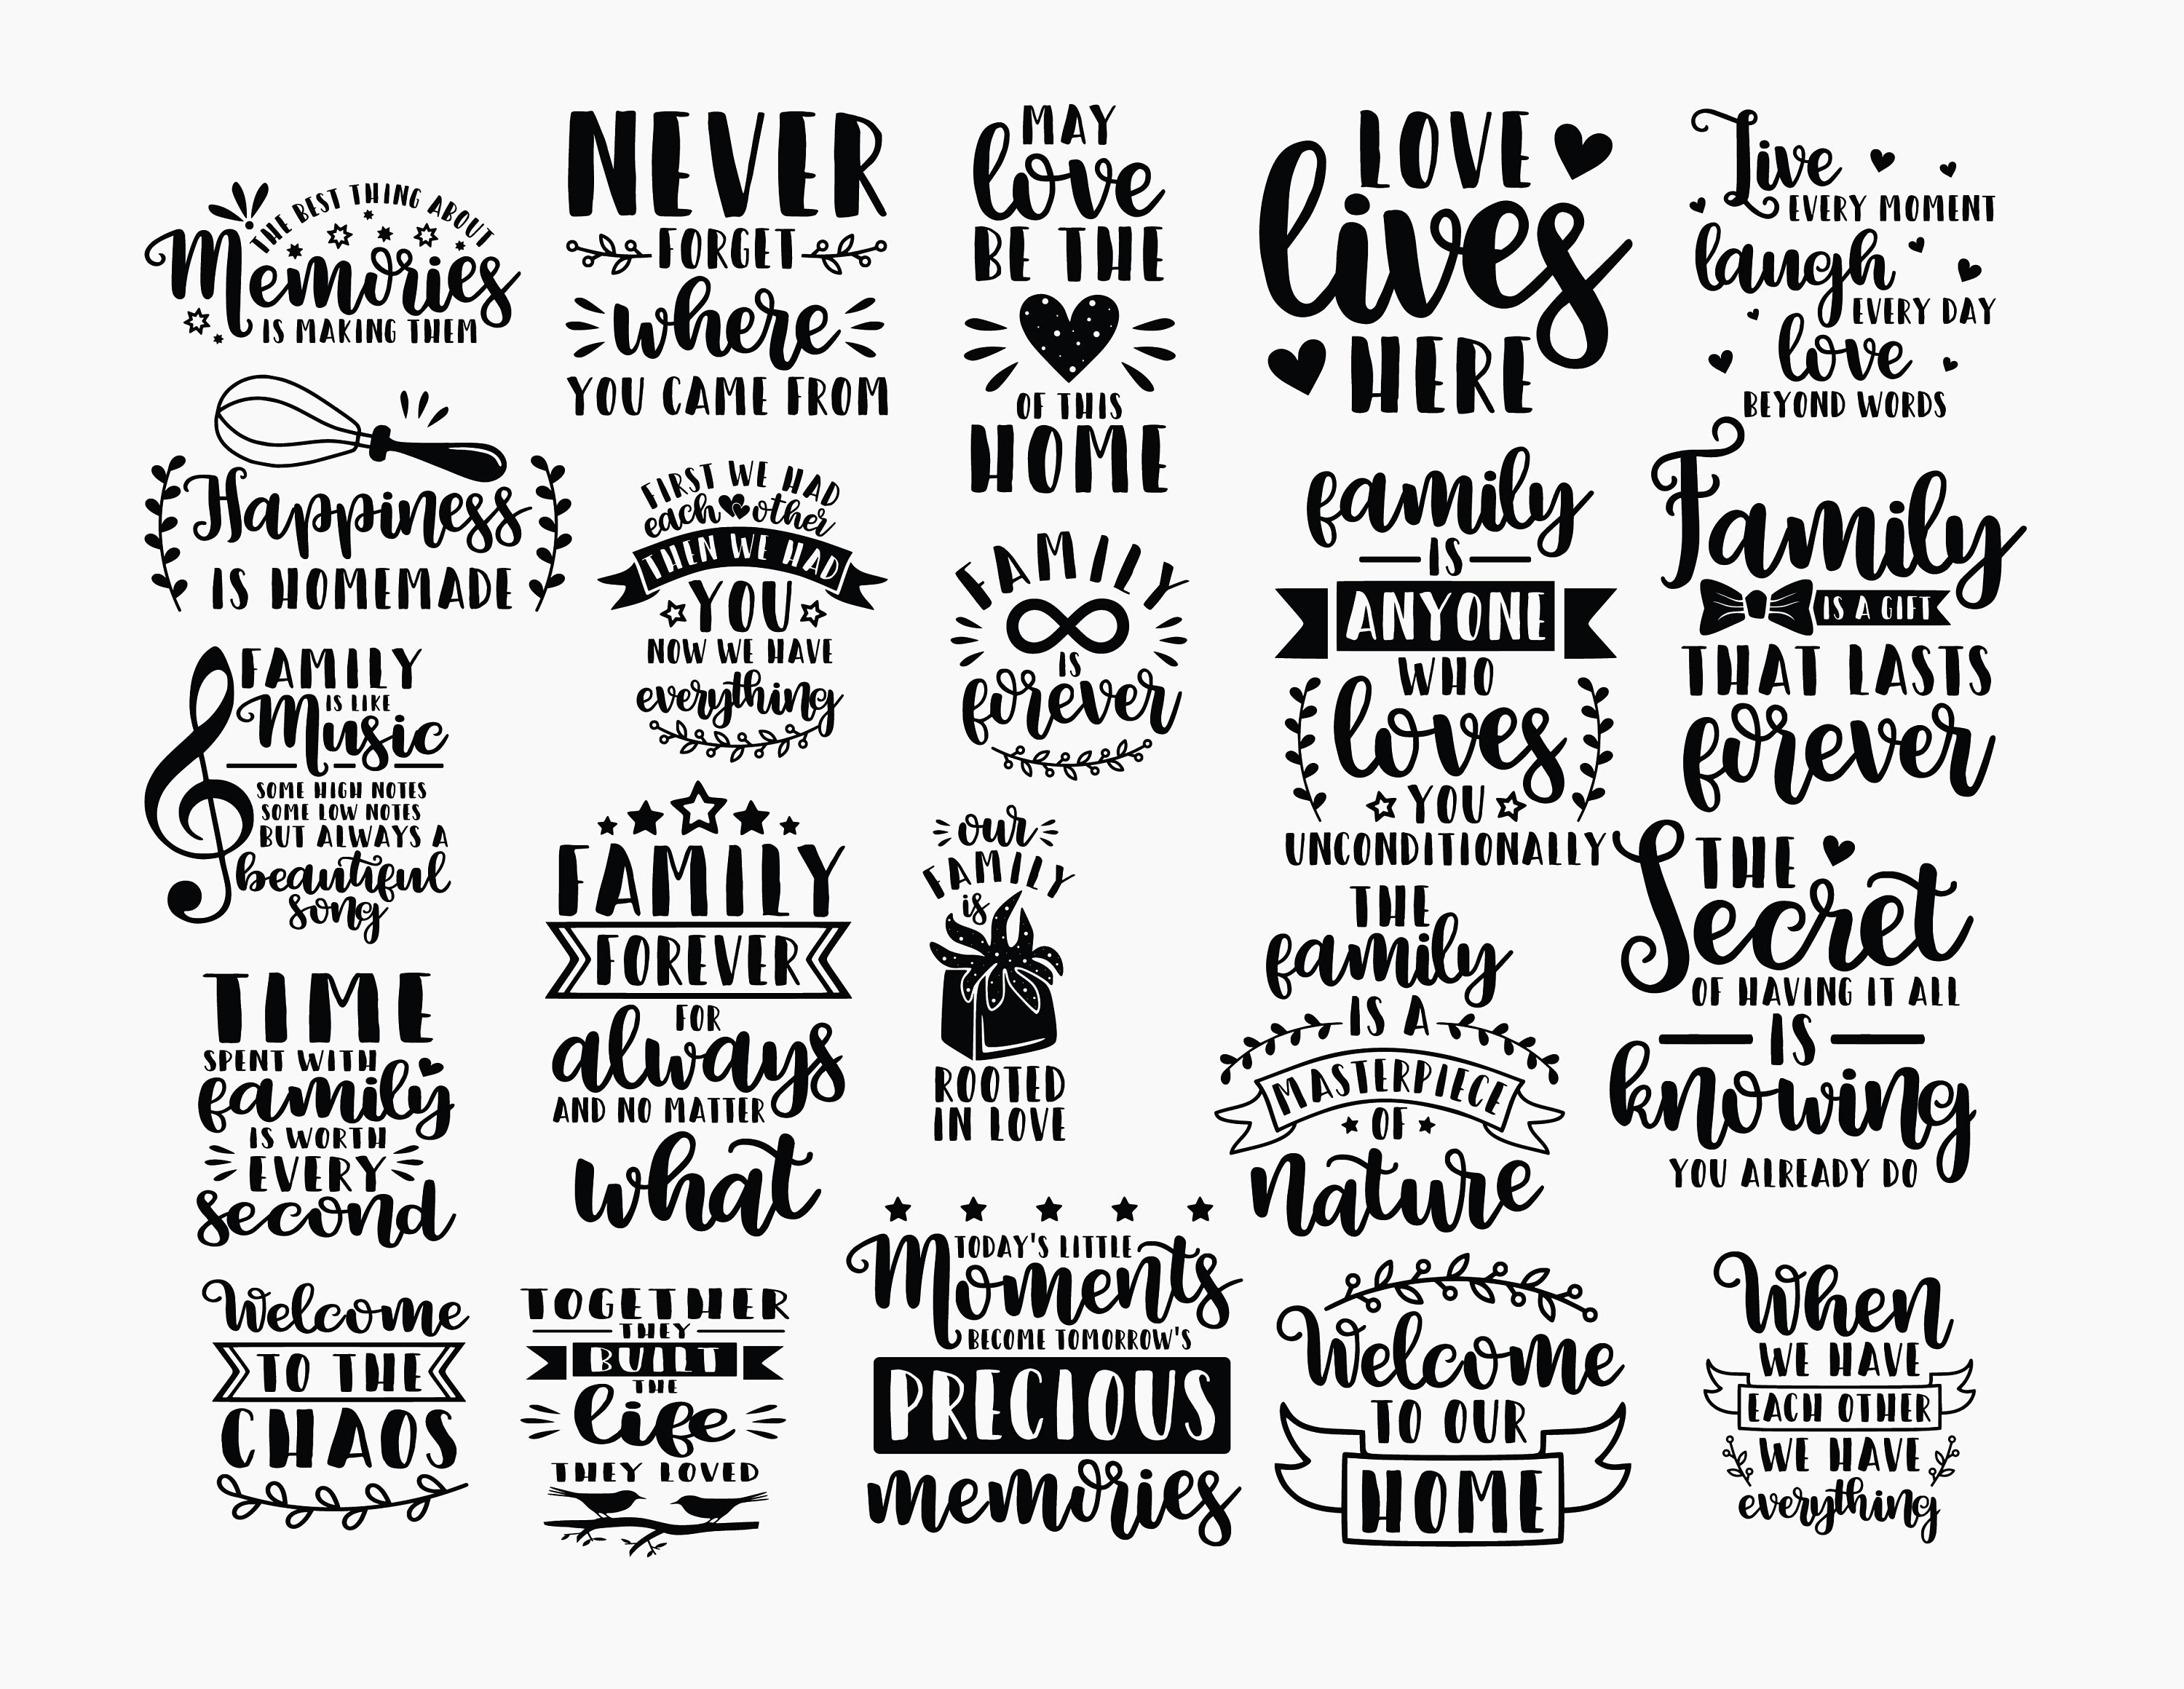 THE BEST THING ABOUT
Memories
IS MAKING THEM
NEVER
FORGET
where
YOU CAME FROM
MAY
love
BE THE
OF THIS
HOME
LOVE
lives
HERE
Live
EVERY MOMENT
laugh
EVERY DAY
love
BEYOND WORDS
Happiness
IS HOMEMADE
FIRST WE HAD
each other
THEN WE HAD
YOU
NOW WE HAVE
everything
FAMILY
IS
forever
family
IS
ANYONE
WHO
loves
YOU
UNCONDITIONALLY
Family
IS A GIFT
THAT LASTS
forever
FAMILY
IS LIKE
Music
SOME HIGH NOTES
SOME LOW NOTES
BUT ALWAYS A
beautiful
song
FAMILY
FOREVER
FOR
always
AND NO MATTER
what
our
FAMILY
is
ROOTED
IN LOVE
THE
family
IS A
MASTERPIECE
OF
nature
THE
Secret
OF HAVING IT ALL
IS
knowing
YOU ALREADY DO
TIME
SPENT WITH
family
IS WORTH
EVERY
second
Welcome
TO THE
CHAOS
TOGETHER
THEY
BUILT
THE
life
THEY LOVED
TODAY'S LITTLE
Moments
BECOME TOMORROW'S
PRECIOUS
memories
Welcome
TO OUR
HOME
When
WE HAVE
EACH OTHER
WE HAVE
everything